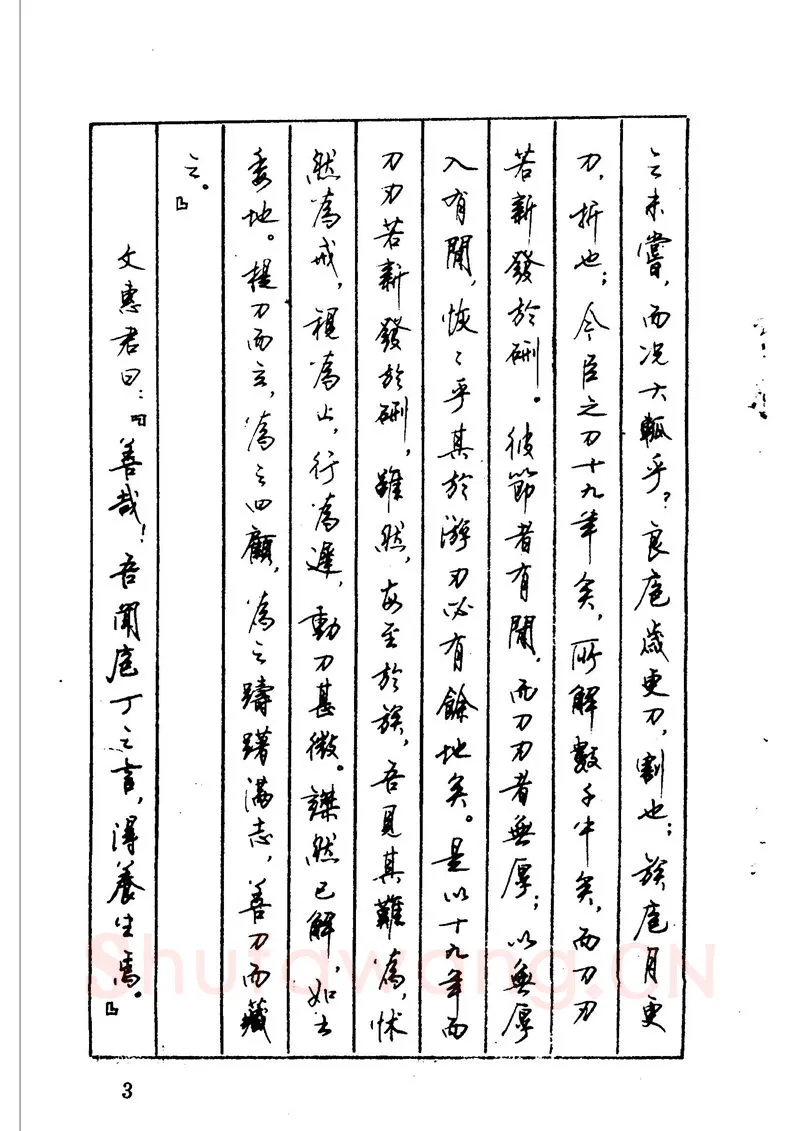 之未嘗，而况大軱乎？良庖歲更刀，割也；族庖月更
刀，折也；今臣之刀十九年矣，所解數千牛矣，而刀刃
若新發於硎。彼節者有間，而刀刃者無厚；以無厚
入有間，恢〻乎其於游刃必有餘地矣。是以十九年而
刀刃若新發於硎，雖然，每至於族，吾見其難為，怵
然為戒，視為止，行為遲，動刀甚微。謋然已解，如土
委地。提刀而立，為之四顧，為之躊躇滿志，善刀而藏
之。』
文惠君曰：『善哉！吾聞庖丁之言，得養生焉。』
3
Shufawang.CN